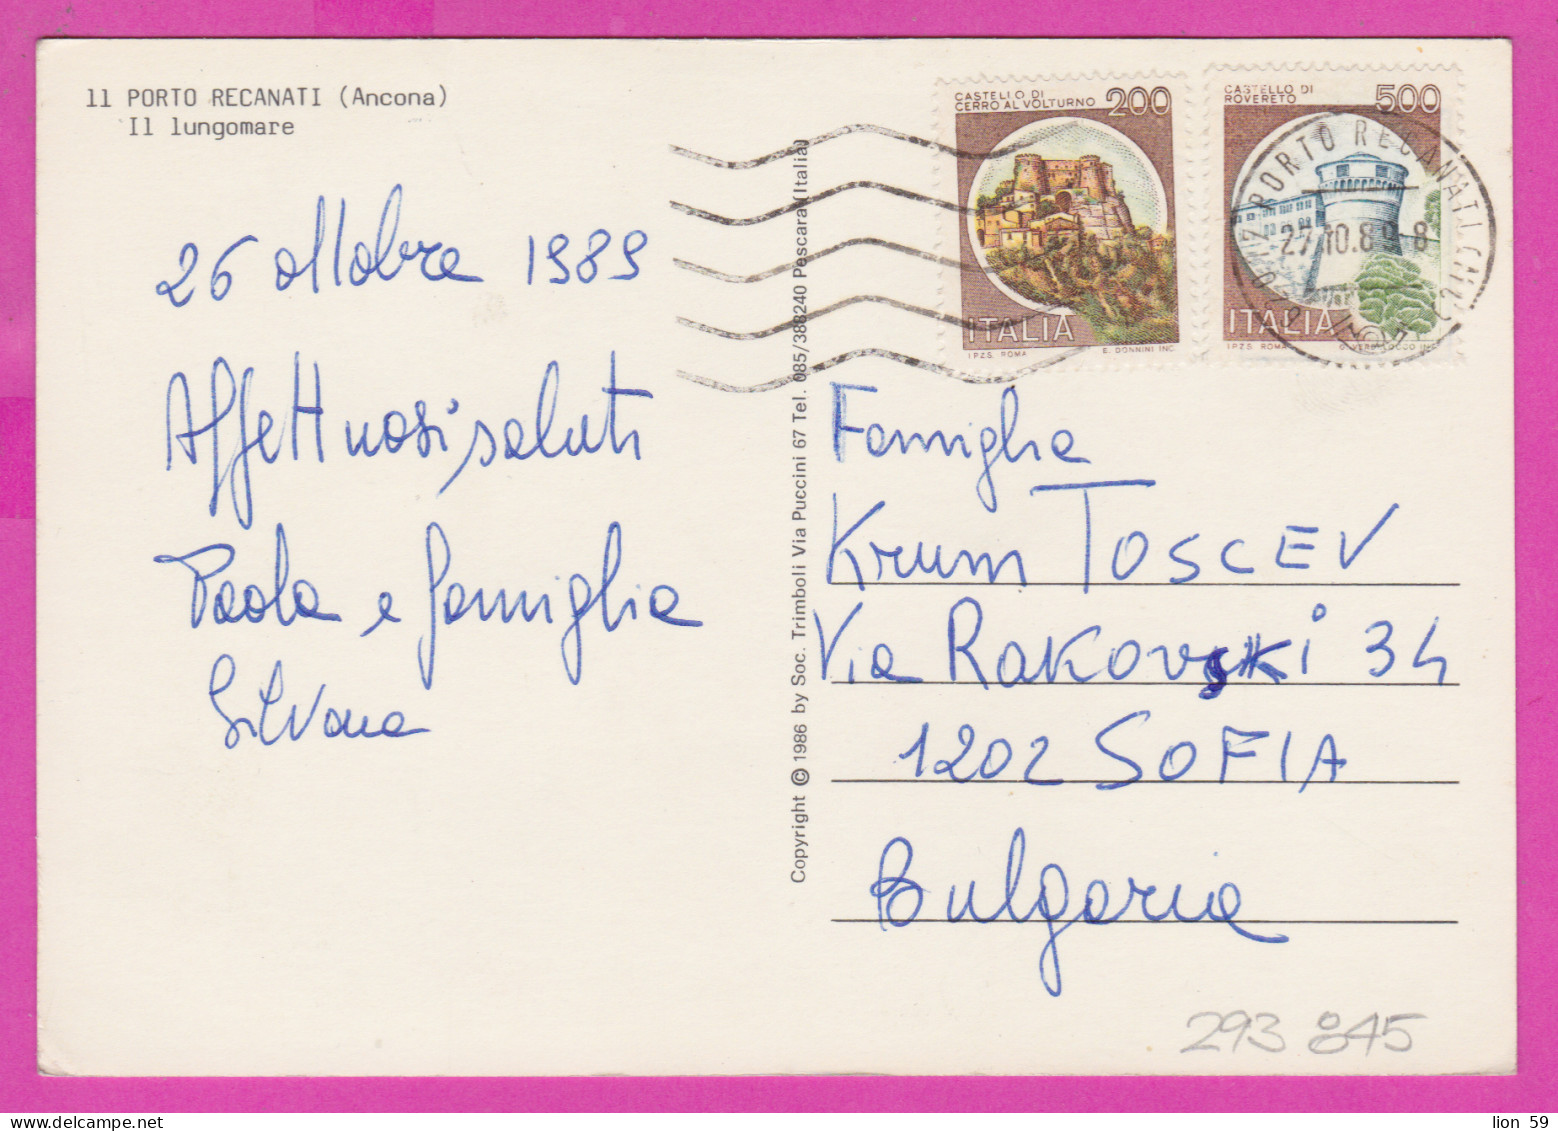 11 PORTO RECANATI (Ancona)
Il lungomare
26 ottobre 1989
Affettuosi saluti
Paola e famiglia
Silvana
Copyright © 1986 by Soc. Trimboli Via Puccini 67 Tel. 085/388240 Pescara (Italia)
CASTELLO DI
CERRO AL VOLTURNO 200
ITALIA
I.P.Z.S. ROMA E. DONNINI INC.
CASTELLO DI
ROVERETO 500
ITALIA
I.P.Z.S. ROMA
PORTO RECANATI
27.10.89 8
Famiglia
Krum TOSCEV
Via RAKOVSKi 34
1202 SOFIA
Bulgaria
293 845
lion 59
delcampe.net